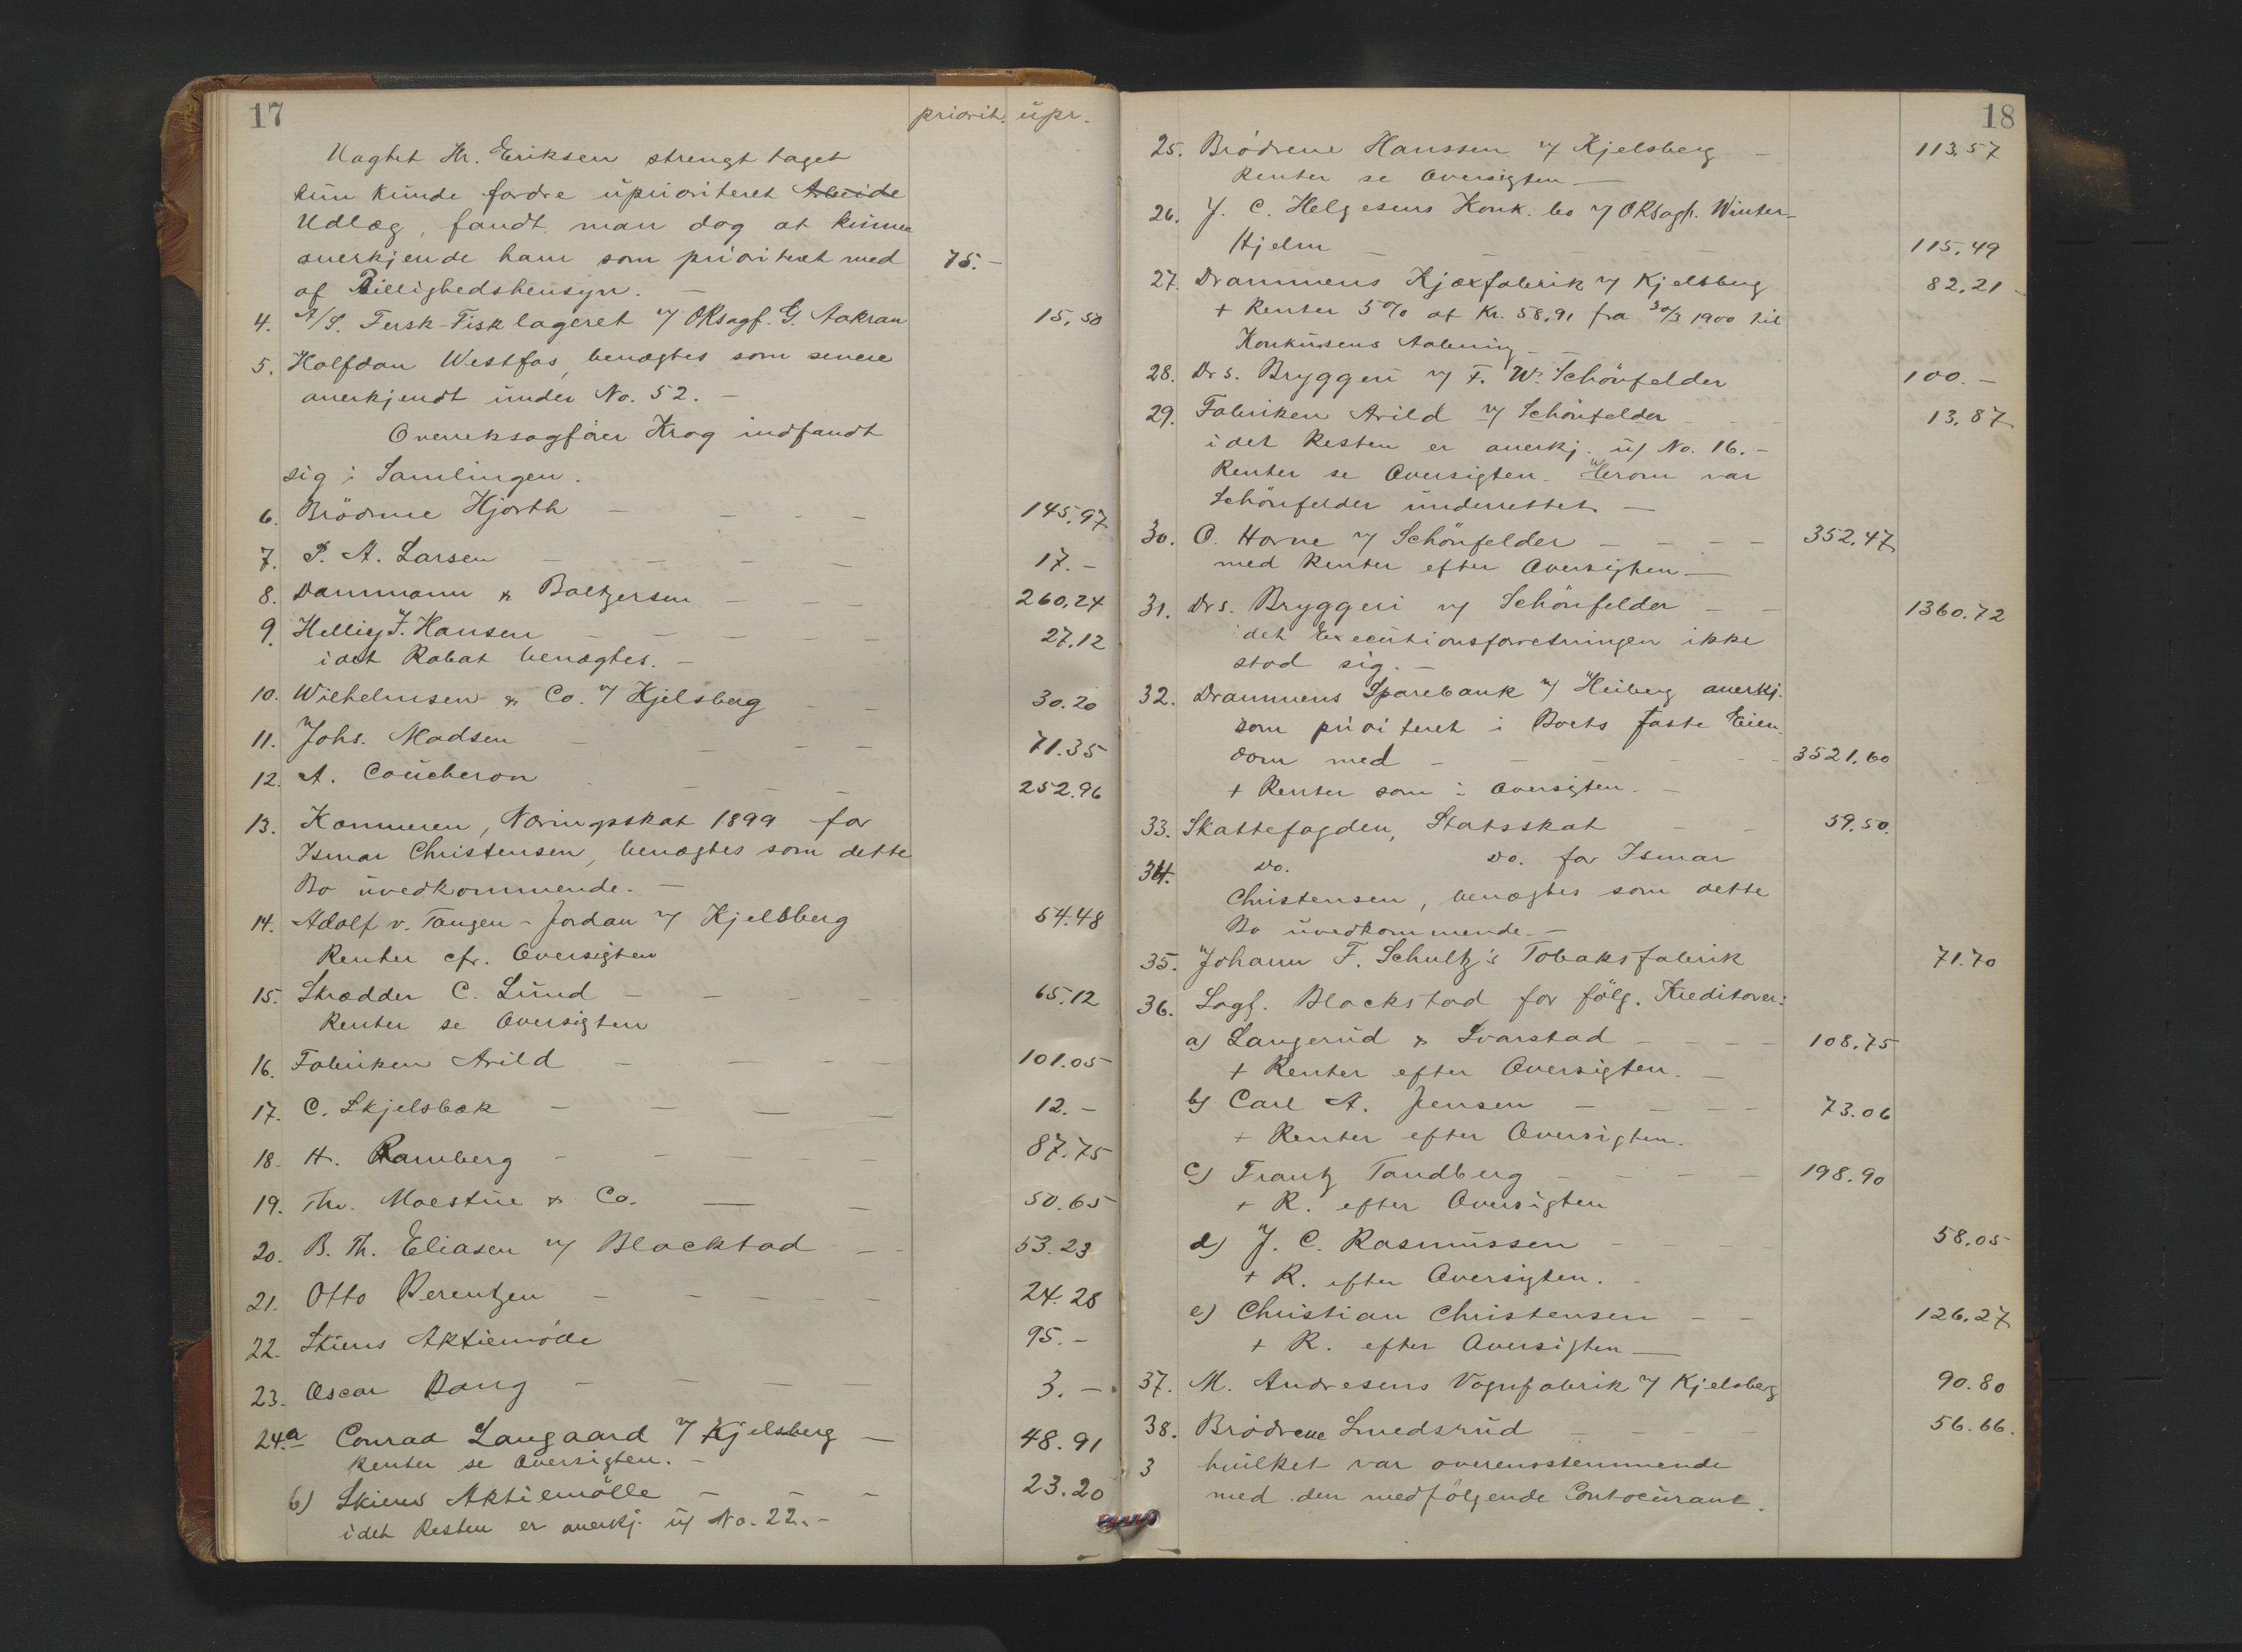 17
priorit. upr.
Uagtet Hr. Eriksen strengt taget
kun kunde fordre uprioriteret Arbeide
Udlæg, fandt man dog at kunne
anerkjende ham som prioriteret med 75.-
af Billighedshensyn. -
4. A/S. Fersk-Fisk lageret v/ ORsagf. G. Aakran 15,50
5. Halfdan Westfas, benægtes som senere
anerkjendt under No. 52. -
Overretssagfører Krog indfandt
sig i Samlingen.
6. Brödrene Hjorth - - - - 145,97
7. P. A. Larsen - - - - 17.-
8. Dammann & Baltzersen - - - 260,24
9. Hellig J. Hansen - - - - - 27,12
idet Rabat benægtes. -
10. Wilhelmsen & Co. v/ Kjelsberg - - 30.20
11. Johs. Madsen - - - - 71.35
12. A. Coucheron - - - - 252.96
13. Kæmneren, Næringsskat 1899 for
Ismar Christensen, benægtes som dette
Bo uvedkommende. -
14. Adolf v. Tangen-Jordan v/ Kjelsberg 54.48
Renter cfr. Oversigten
15. Skrædder C. Lund - - - - - 65.12
Renter se Oversigten
16. Fabriken Arild - - - - 101.05
17. C. Skjelsbæk - - - - 12.-
18. H. Ramberg - - - - - 87.75
19. Thv. Moestue & Co. - - 50.65
20. B. Th. Eliasen v/ Blackstad - - 53.23
21. Otto Berentzen - - - - - 24.28
22. Skiens Aktiemöde 95.-
23. Oscar Bang - - - - 3. -
24.a Conrad Langaard v/ Kjelsberg - 48.91
Renter se Oversigten. -
b) Skiens Aktiemölle - - - 23.20
idet Resten er anerkj. u/ No. 22.-
18
25. Brödrene Hanssen v/ Kjelsberg - 113,57
Renter se Oversigten -
26. J. C. Helgesens Konk. bo v/ ORsagf. Winter-
Hjelm - - - - - 115,49
27. Drammens Kjæxfabrik v/ Kjelsberg 82,21 -
+ Renter 5% af Kr. 58,91 fra 30/3 1900 til
Konkursens Aabning - -
28. Drs. Bryggeri v/ F. W. Schönfelder 100.-
29. Fabriken Arild v/ Schönfelder - - - 13,87
idet Resten er anerkj. u/ No. 16. -
Renter se Oversigten. Herom var
Schönfelder underrettet -
30. O. Horne v/ Schönfelder - - - - 352,47
med Renter efter Oversigten -
31. Drs. Bryggeri v/ Schönfelder - - 1360.72
idet Executionsforretningen ikke
stod sig. -
32. Drammens Sparebank v/ Heiberg anerkj.
som prioriteret i Boets faste Eien-
dom med - - - - - 3521.60
+ Renter som i Oversigten. -
33. Skattefogden, Statsskat - - 59,50.
34. Do. Do. for Ismar
Christensen, benægtes som dette
Bo uvedkommende. -
35. Johann F. Schultz's Tobaksfabrik 71.70
36. Sagf. Blackstad for fölg. Kreditorer:
a) Langerud & Svarstad - - - - 108.75
+ Renter efter Oversigten. -
b) Carl A. Jensen - - - - 73.06
+ Renter efter Oversigten.
c) Frantz Tandberg - - - - 198.90
+ R. efter Oversigten
d) J. C. Rasmussen - - - 58.05
+ R. efter Oversigten. -
e) Christian Christensen - - 126.27
+ R. efter Oversigten -
37. M. Andresens Vognfabrik v/ Kjelsberg 90.80
38. Brödrene Smedsrud - - - - 56.66.
3 hvilket var overensstemmende
med den medfölgende Contocurant.